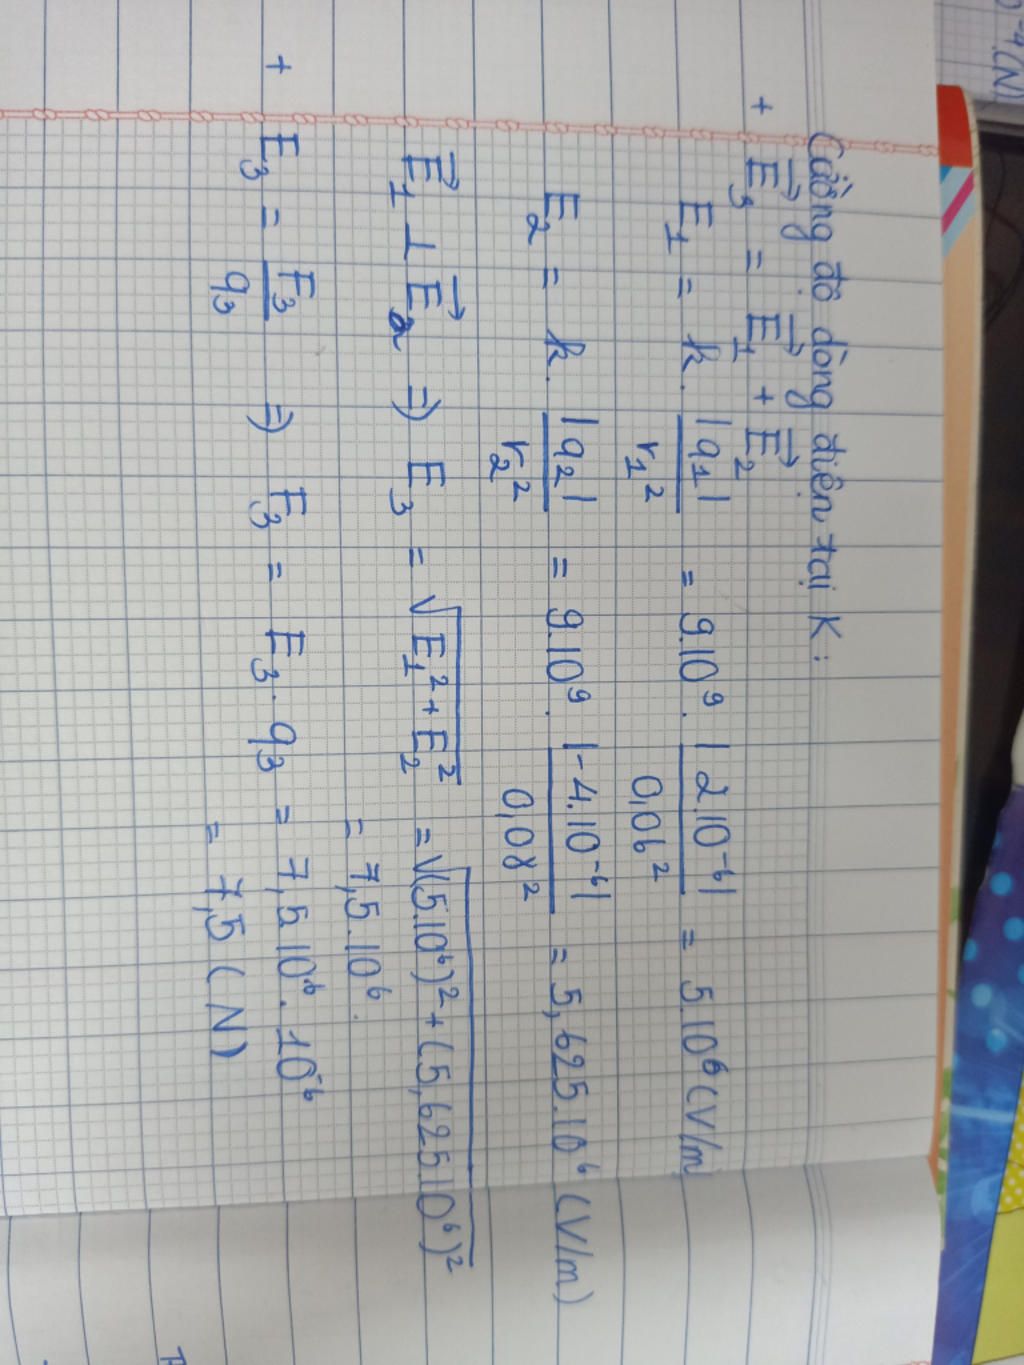 0⁻⁴(N)
Cường độ dòng điện tại K:
+ E₃⃗ = E₁⃗ + E₂⃗
E₁ = k. |q₁| / r₁² = 9.10⁹. |2.10⁻⁶| / 0,06² = 5.10⁶ (V/m
E₂ = k. |q₂| / r₂² = 9.10⁹. |-4.10⁻⁶| / 0,08² = 5,625.10⁶ (V/m)
E₁⃗ ⊥ E₂⃗ => E₃ = √(E₁² + E₂²) = √((5.10⁶)² + (5,625.10⁶)²)
= 7,5.10⁶.
+ E₃ = F₃ / q₃ => F₃ = E₃ . q₃ = 7,5.10⁶. 10⁻⁶
= 7,5 (N)